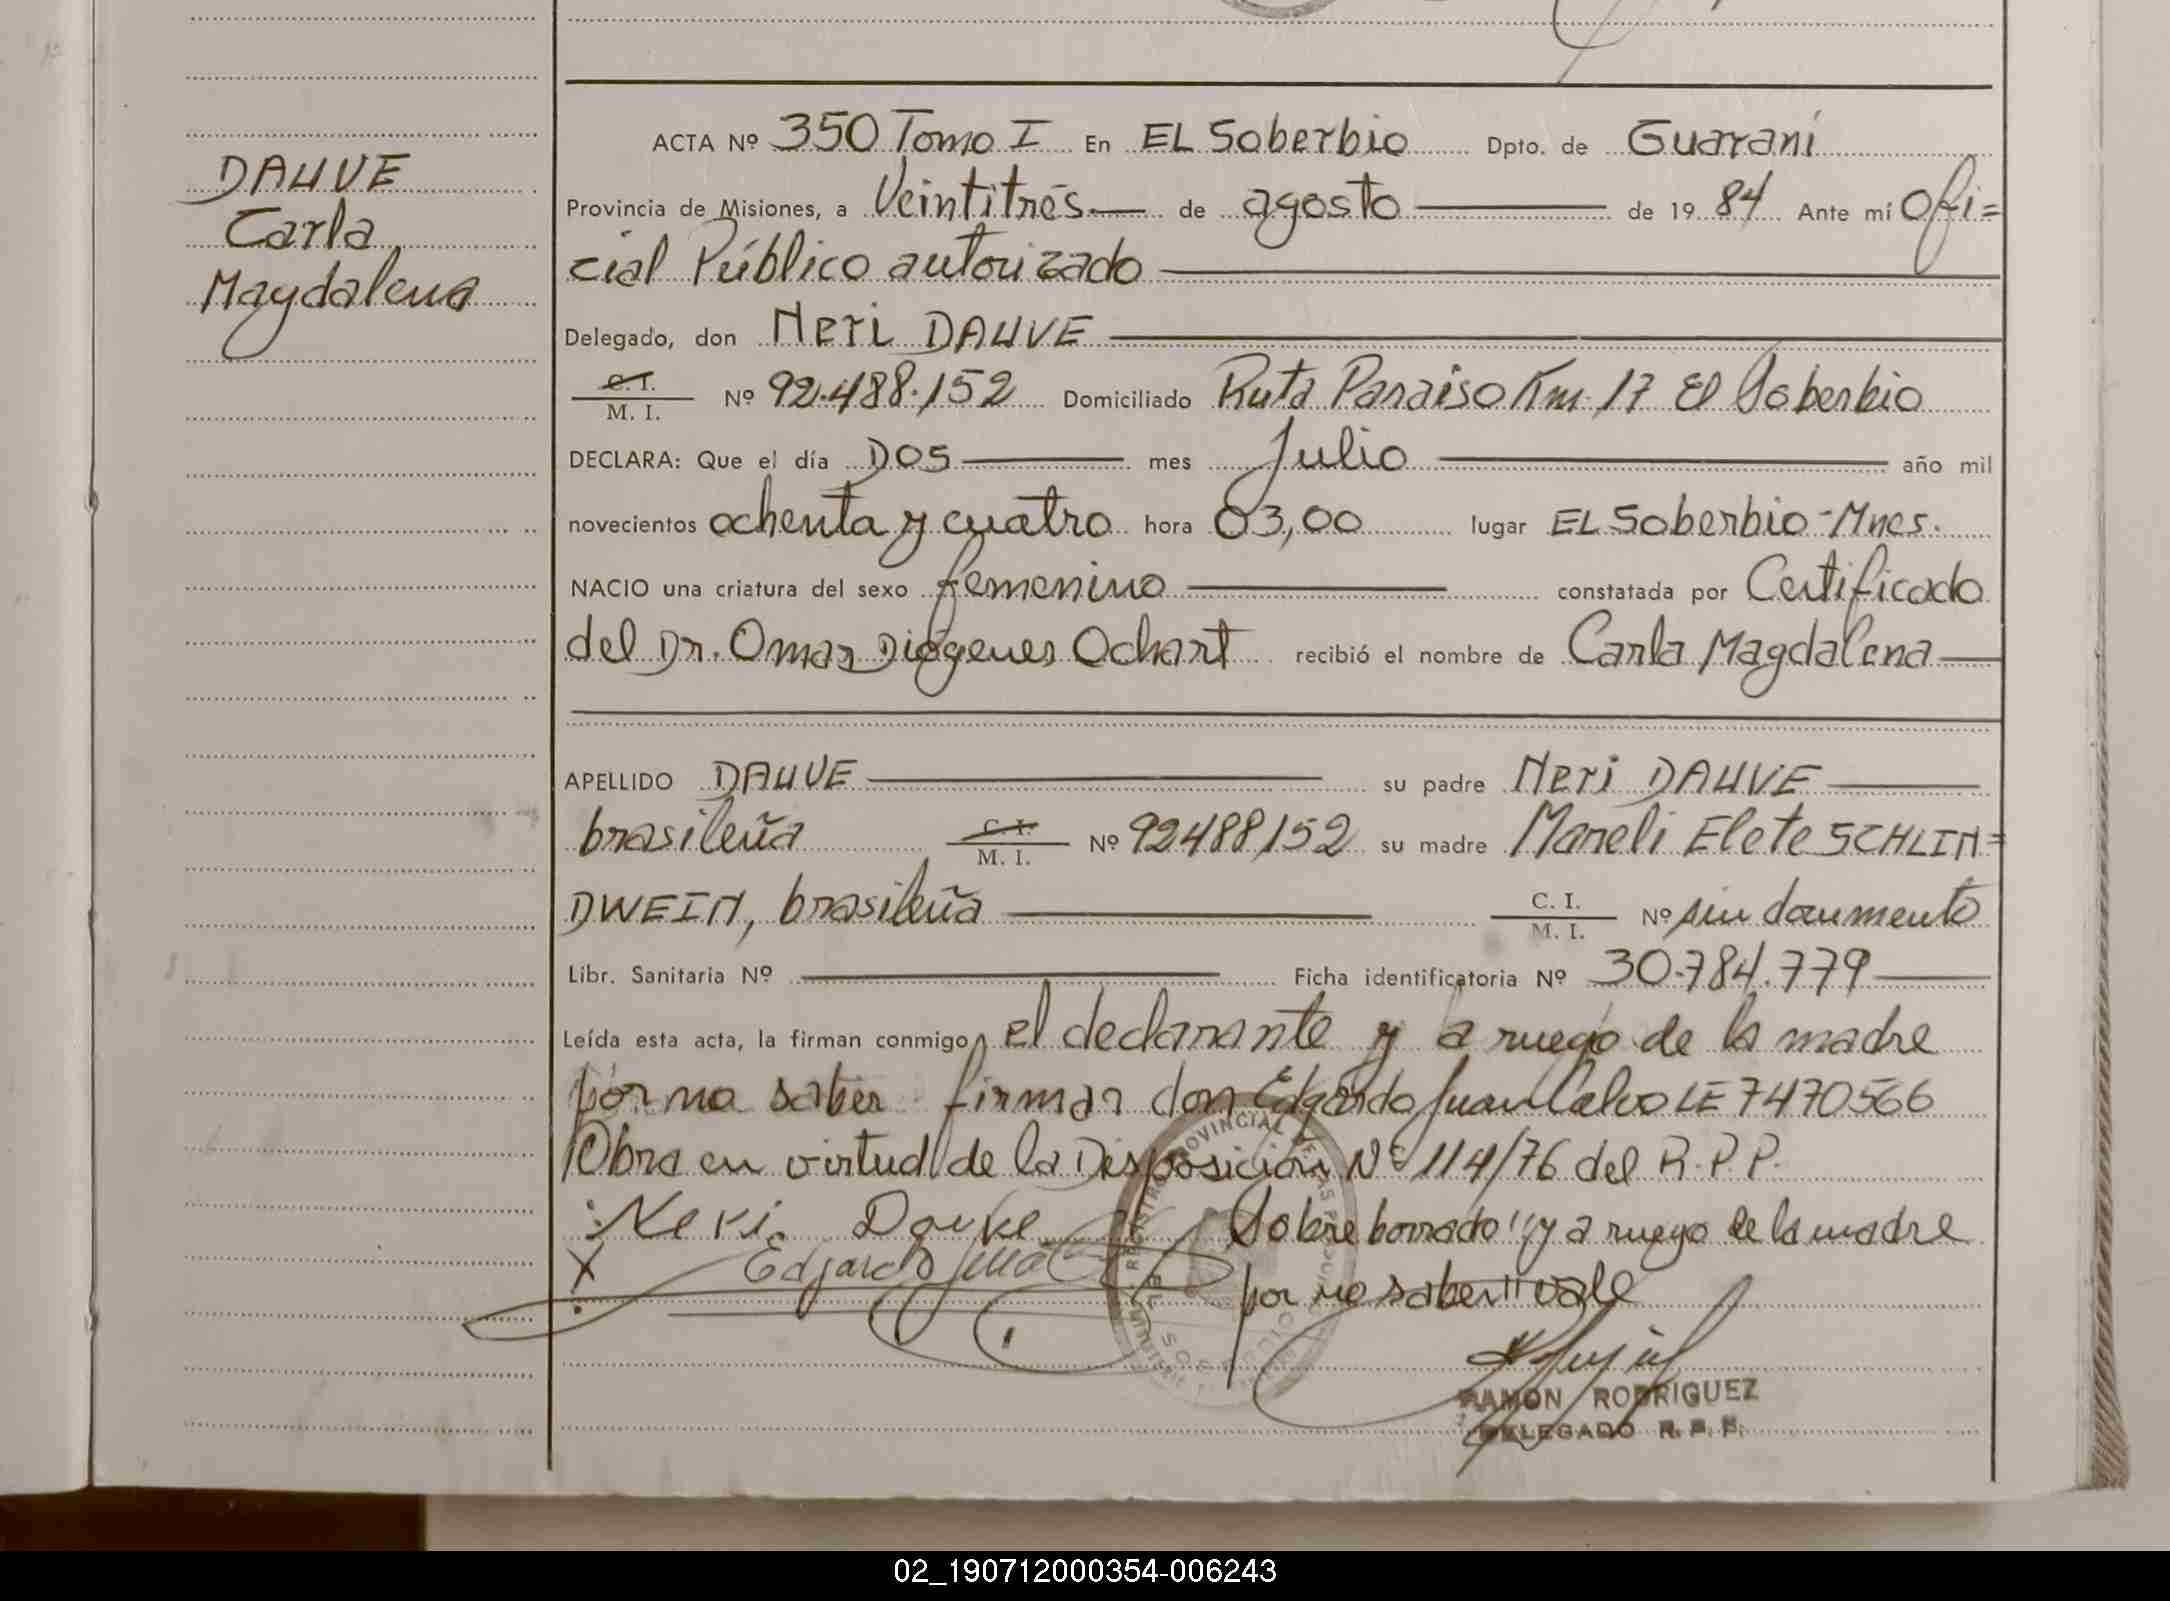 DAUVE
Carla
Magdalena
ACTA Nº 350 Tomo I En EL Soberbio Dpto. de Guaraní
Provincia de Misiones, a Veintitrés de agosto de 1984 Ante mí Ofi=
cial Público autorizado
Delegado, don Neri DAUVE
C.I.
M. I. Nº 92.488.152 Domiciliado Ruta Paraiso Km. 17 El Soberbio
DECLARA: Que el día DOS mes Julio año mil
novecientos ochenta y cuatro hora 03,00 lugar EL Soberbio-Mnes.
NACIO una criatura del sexo femenino constatada por Certificado
del Dr. Omar Diógenes Ochart recibió el nombre de Carla Magdalena
APELLIDO DAUVE su padre Neri DAUVE
brasileña C.I. M. I. Nº 92488152 su madre Mareli Elete SCHLIN=
DWEIN, brasileña C. I. M. I. Nº sin documento
Libr. Sanitaria Nº Ficha identificatoria Nº 30.784.779
Leída esta acta, la firman conmigo, el declarante y a ruego de la madre
por no saber firmar don Edgardo Juan Calvo LE 7470566
Obra en virtud de la Disposición Nº 114/76 del R.P.P.
Neri Dauve Sobre borrado "y a ruego de la madre
X Edgardo Juan
por no saber" vale
RAMON RODRIGUEZ
DELEGADO R. P. P.
02_190712000354-006243